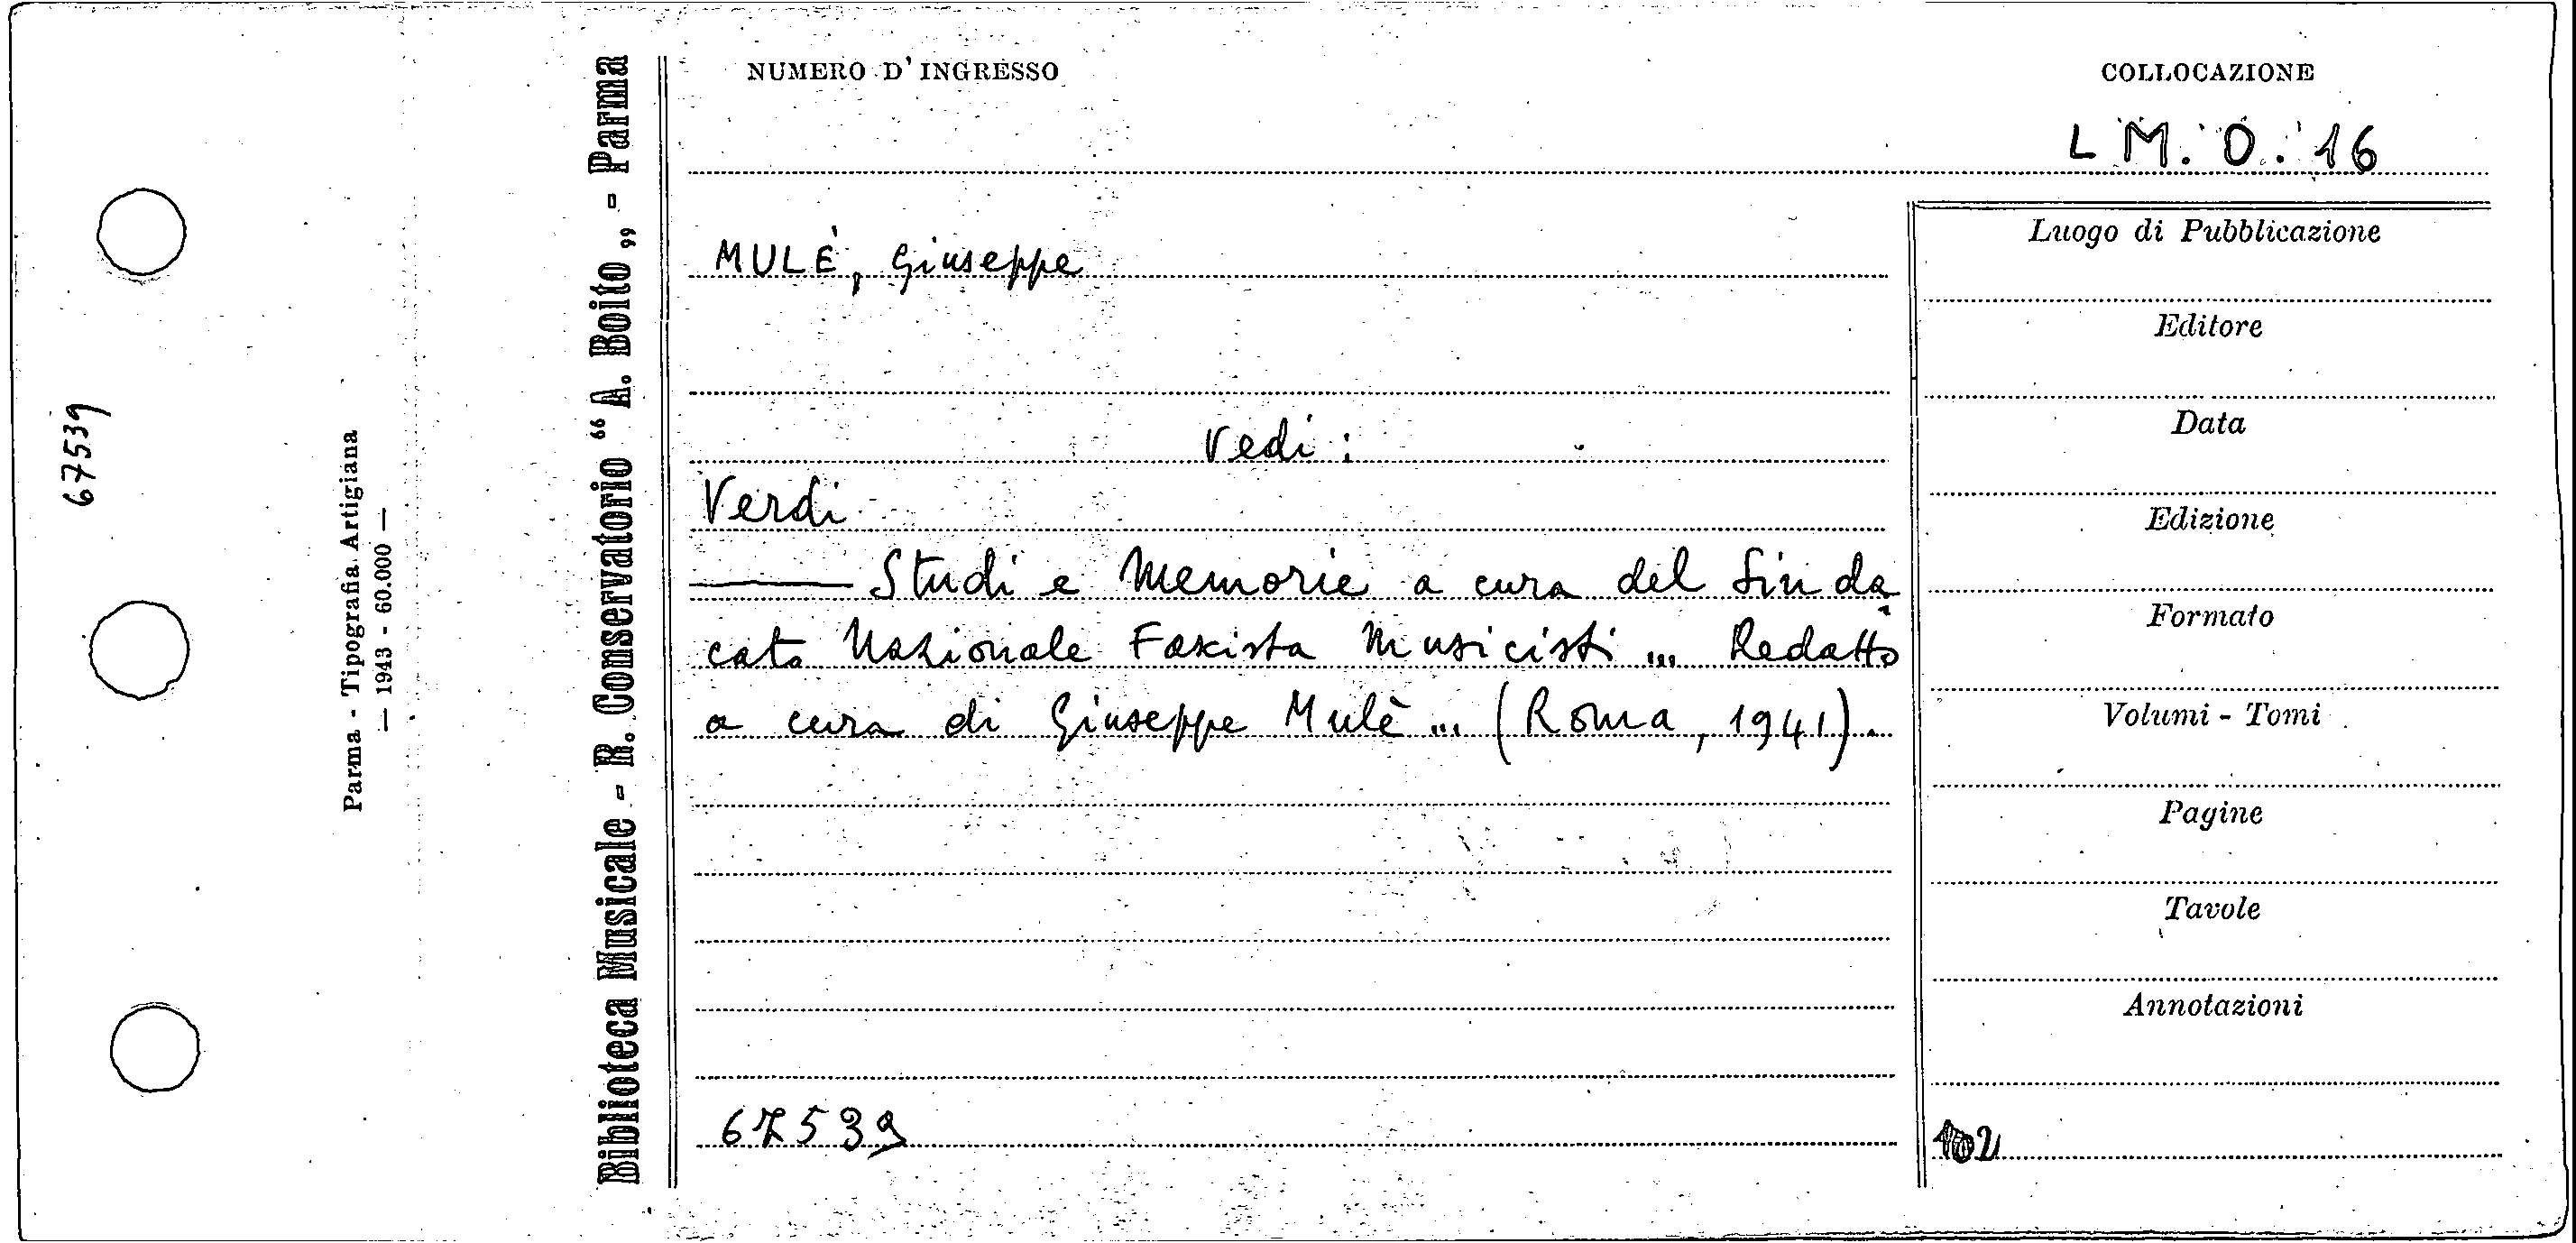 67539
Parma - Tipografia Artigiana
— 1943 - 60.000 —
Biblioteca Musicale - R. Conservatorio “ A. Boito „ - Parma
NUMERO D' INGRESSO
COLLOCAZIONE
L M. O. 16
MULÈ, Giuseppe
Vedi :
Verdi
——— Studi e Memorie a cura del Sinda
cato Nazionale Fascista Musicisti ... Redatto
a cura di Giuseppe Mulè ... (Roma, 1941).
67539
Luogo di Pubblicazione
Editore
Data
Edizione
Formato
Volumi - Tomi
Pagine
Tavole
Annotazioni